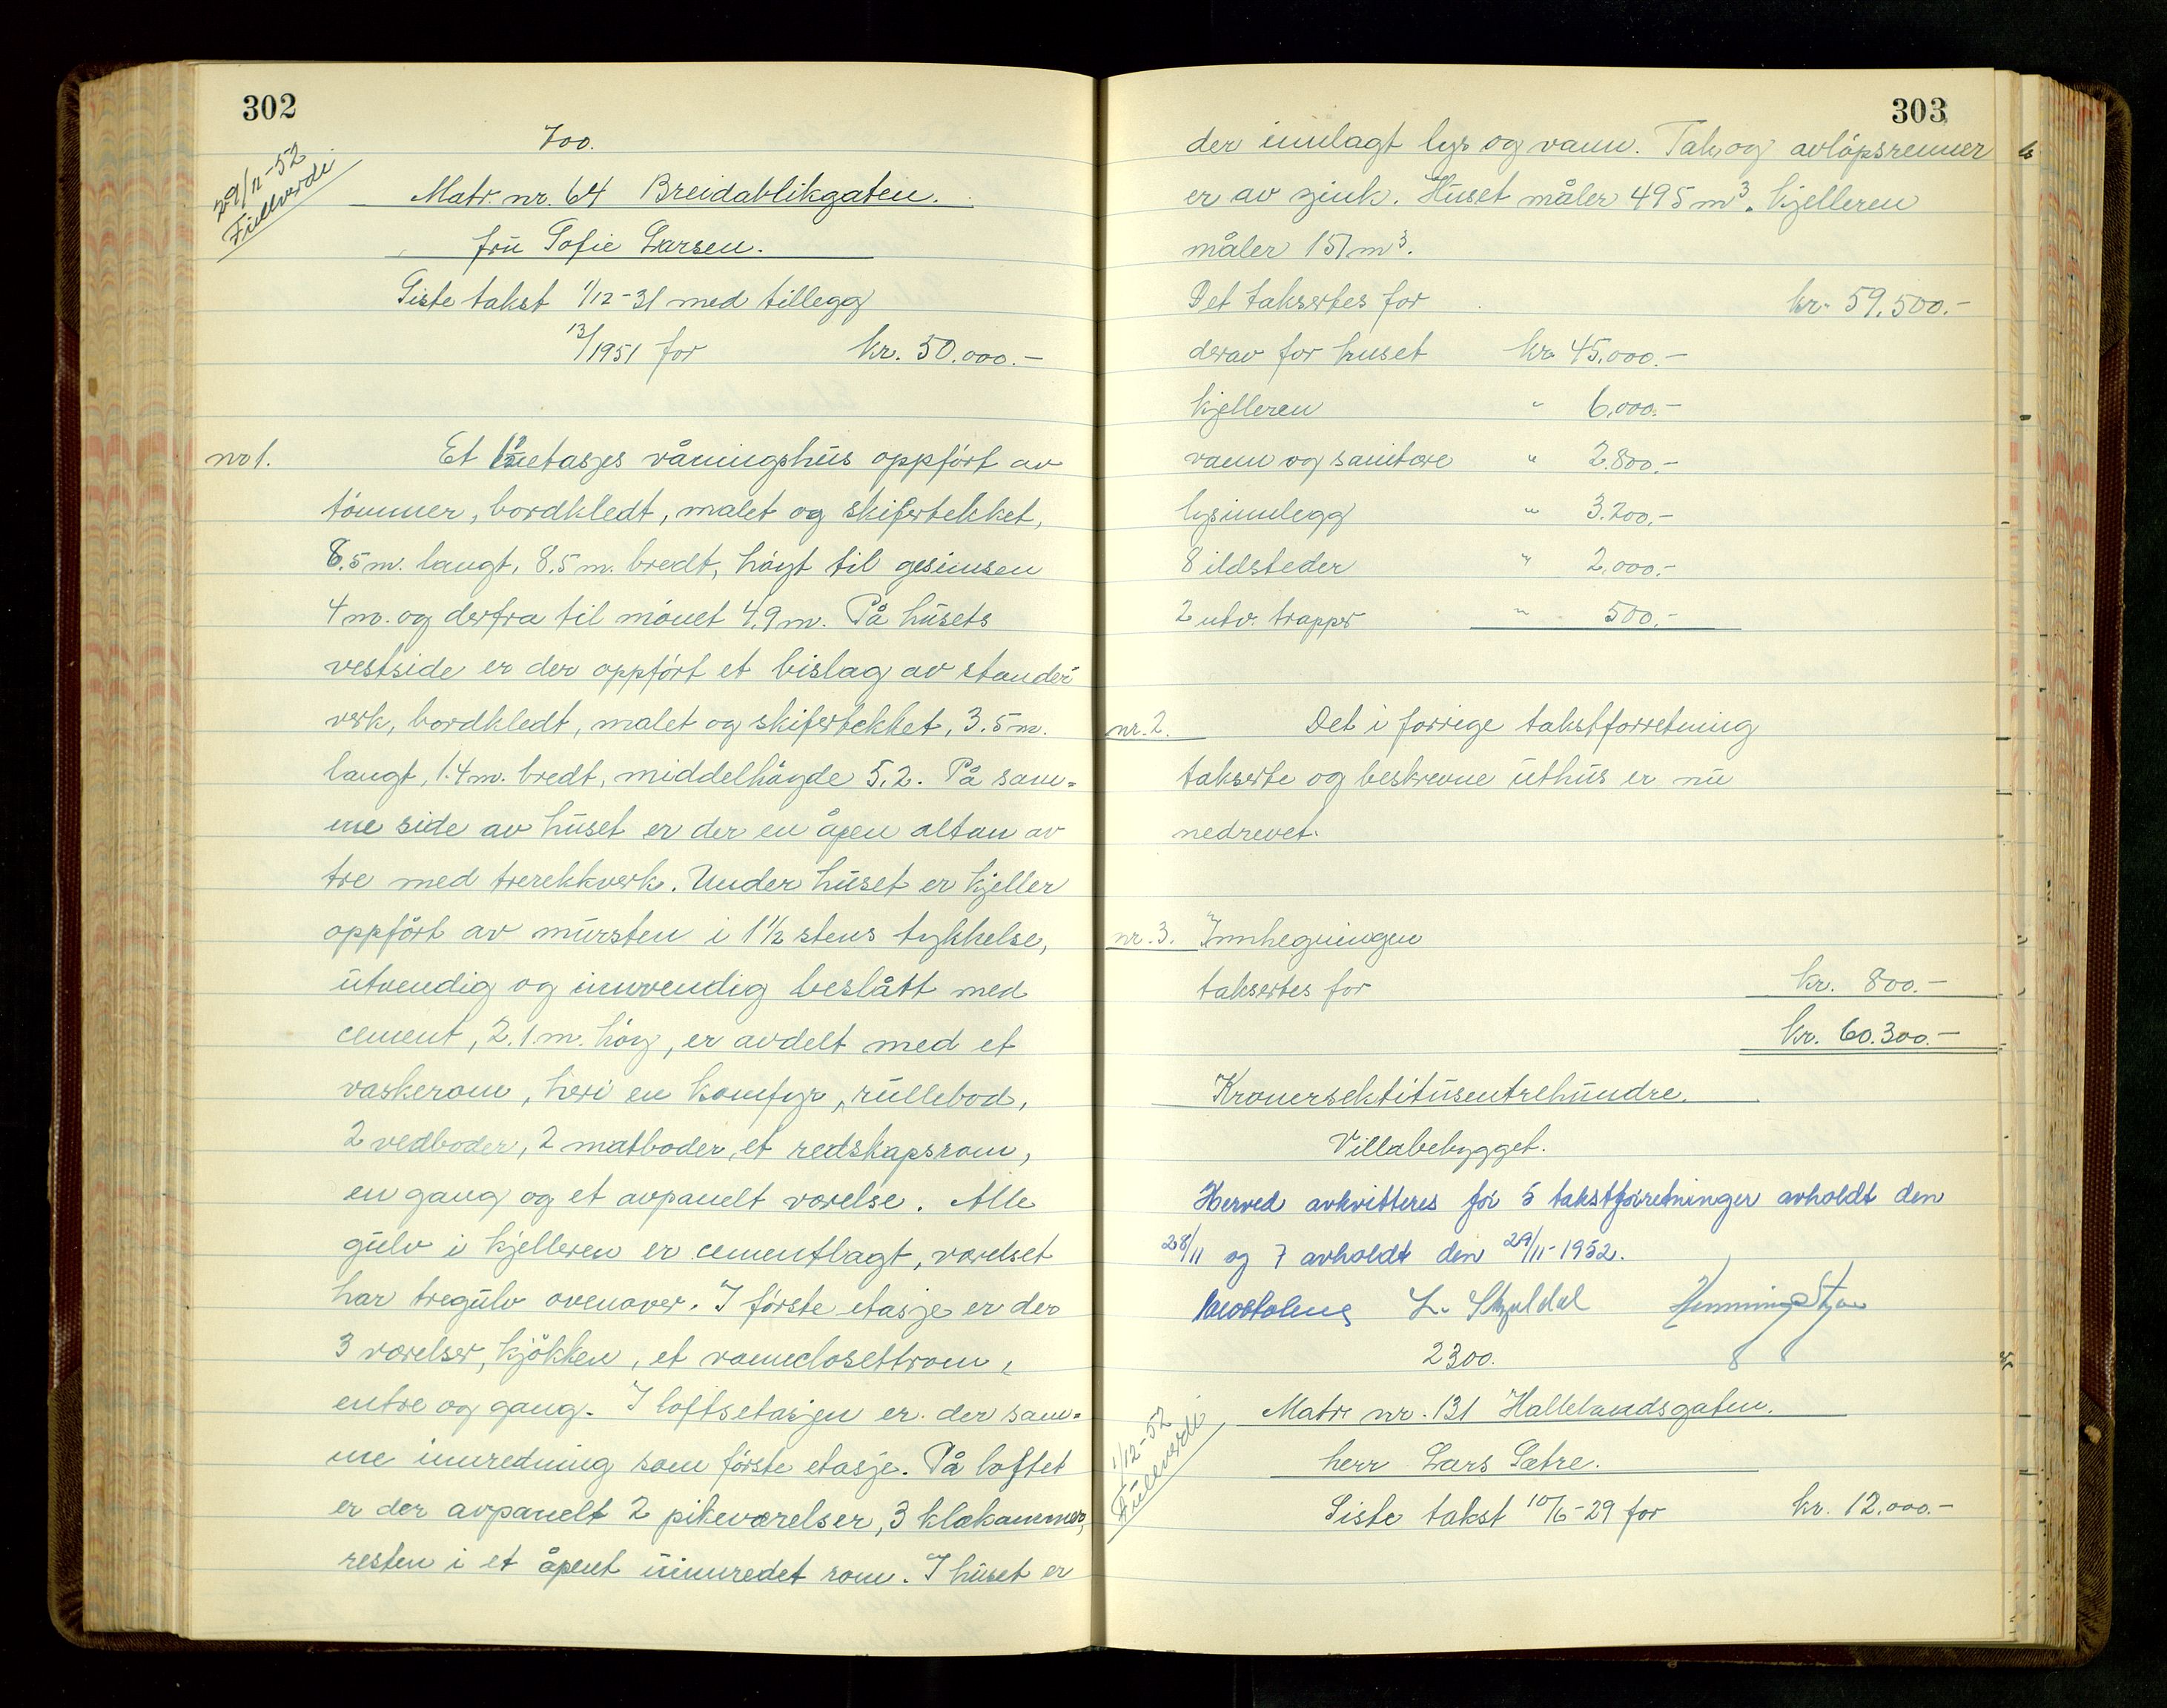 302
700.
29/11-52
Fullverdi
Matr. nr. 64 Breidablikgaten.
fru Sofie Larsen.
Siste takst 1/12-31 med tillegg
13/1951 for kr. 50.000.-
nr 1. Et 1½ etasjes våningshus oppført av
tømmer, bordkledt, malet og skifertekket,
8.5 m. langt, 8.5 m. bredt, høyt til gesimsen
4 m. og derfra til mønet 4,9 m. På husets
vestside er der oppført et bislag av stender
verk, bordkledt, malet og skifertekket, 3.5 m.
langt, 1.4 m. bredt, middelhøyde 5,2. På sam=
me side av huset er der en åpen altan av
tre med trerekkverk. Under huset er kjeller
oppført av mursten i 1½ stens tykkelse,
utvendig og innvendig beslått med
cement, 2.1 m. høy, er avdelt med et
vaskerom, heri en komfyr, rullebod,
2 vedboder, 2 matboder, et redskapsrom,
en gang og et avpanelt værelse. Alle
gulv i kjelleren er cementlagt, værelset
har tregulv ovenover. I første etasje er der
3 værelser, kjøkken, et vannclosettrom,
entre og gang. I loftsetasjen er der sam=
me innredning som første etasje. På loftet
er der avpanelt 2 pikeværelser, 3 klækammer,
resten i et åpent uinnredet rom. I huset er
303
der innlagt lys og vann. Tak og avløpsrenner
er av zink. Huset måler 495 m³. kjelleren
måler 151 m³.
Det taksertes for kr. 59.500.-
derav for huset kr. 45.000.-
kjelleren " 6.000.-
vann og sanitære " 2.800.-
lysinnlegg " 3.200.-
8 ildsteder " 2.000.-
2 utv. trapper " 500.-
nr. 2. Det i forrige takstforretning
takserte og beskrevne uthus er nu
nedrevet.
nr. 3. Innhegningen
taksertes for kr. 800.-
kr. 60.300.-
Kronersekstitusentrehundre.
Villabebygget.
Herved avkvitteres for 5 takstforretninger avholdt den
28/11 og 7 avholdt den 29/11-1952.
L. Skjoldal Henning
2300.
1/12-52
Fullverdi
Matr. nr. 131 Hallelandsgaten.
herr Lars Sætre.
Siste takst 10/6-29 for kr. 12.000.-